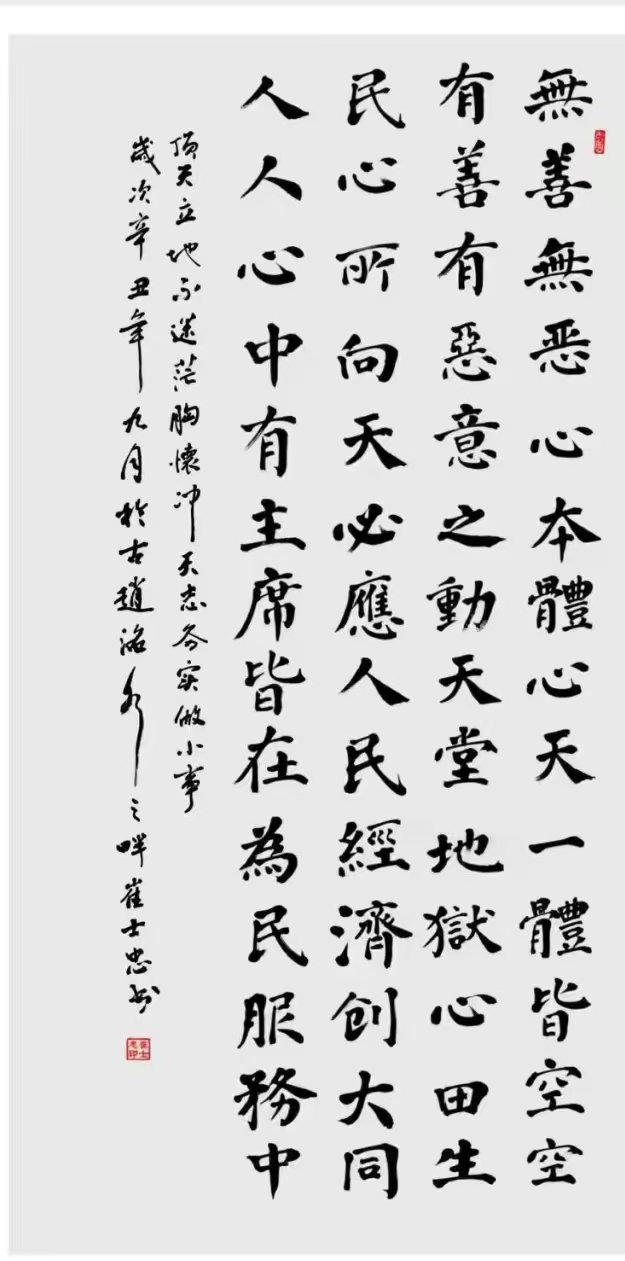 無善無恶心本體心天一體皆空空
有善有惡意之動天堂地獄心田生
民心所向天必應人民經濟創大同
人人心中有主席皆在為民服務中
頂天立地不迷茫胸懷冲天志务实做小事
歲次辛丑年九月於古趙洺水之畔崔士忠书
崔士忠印